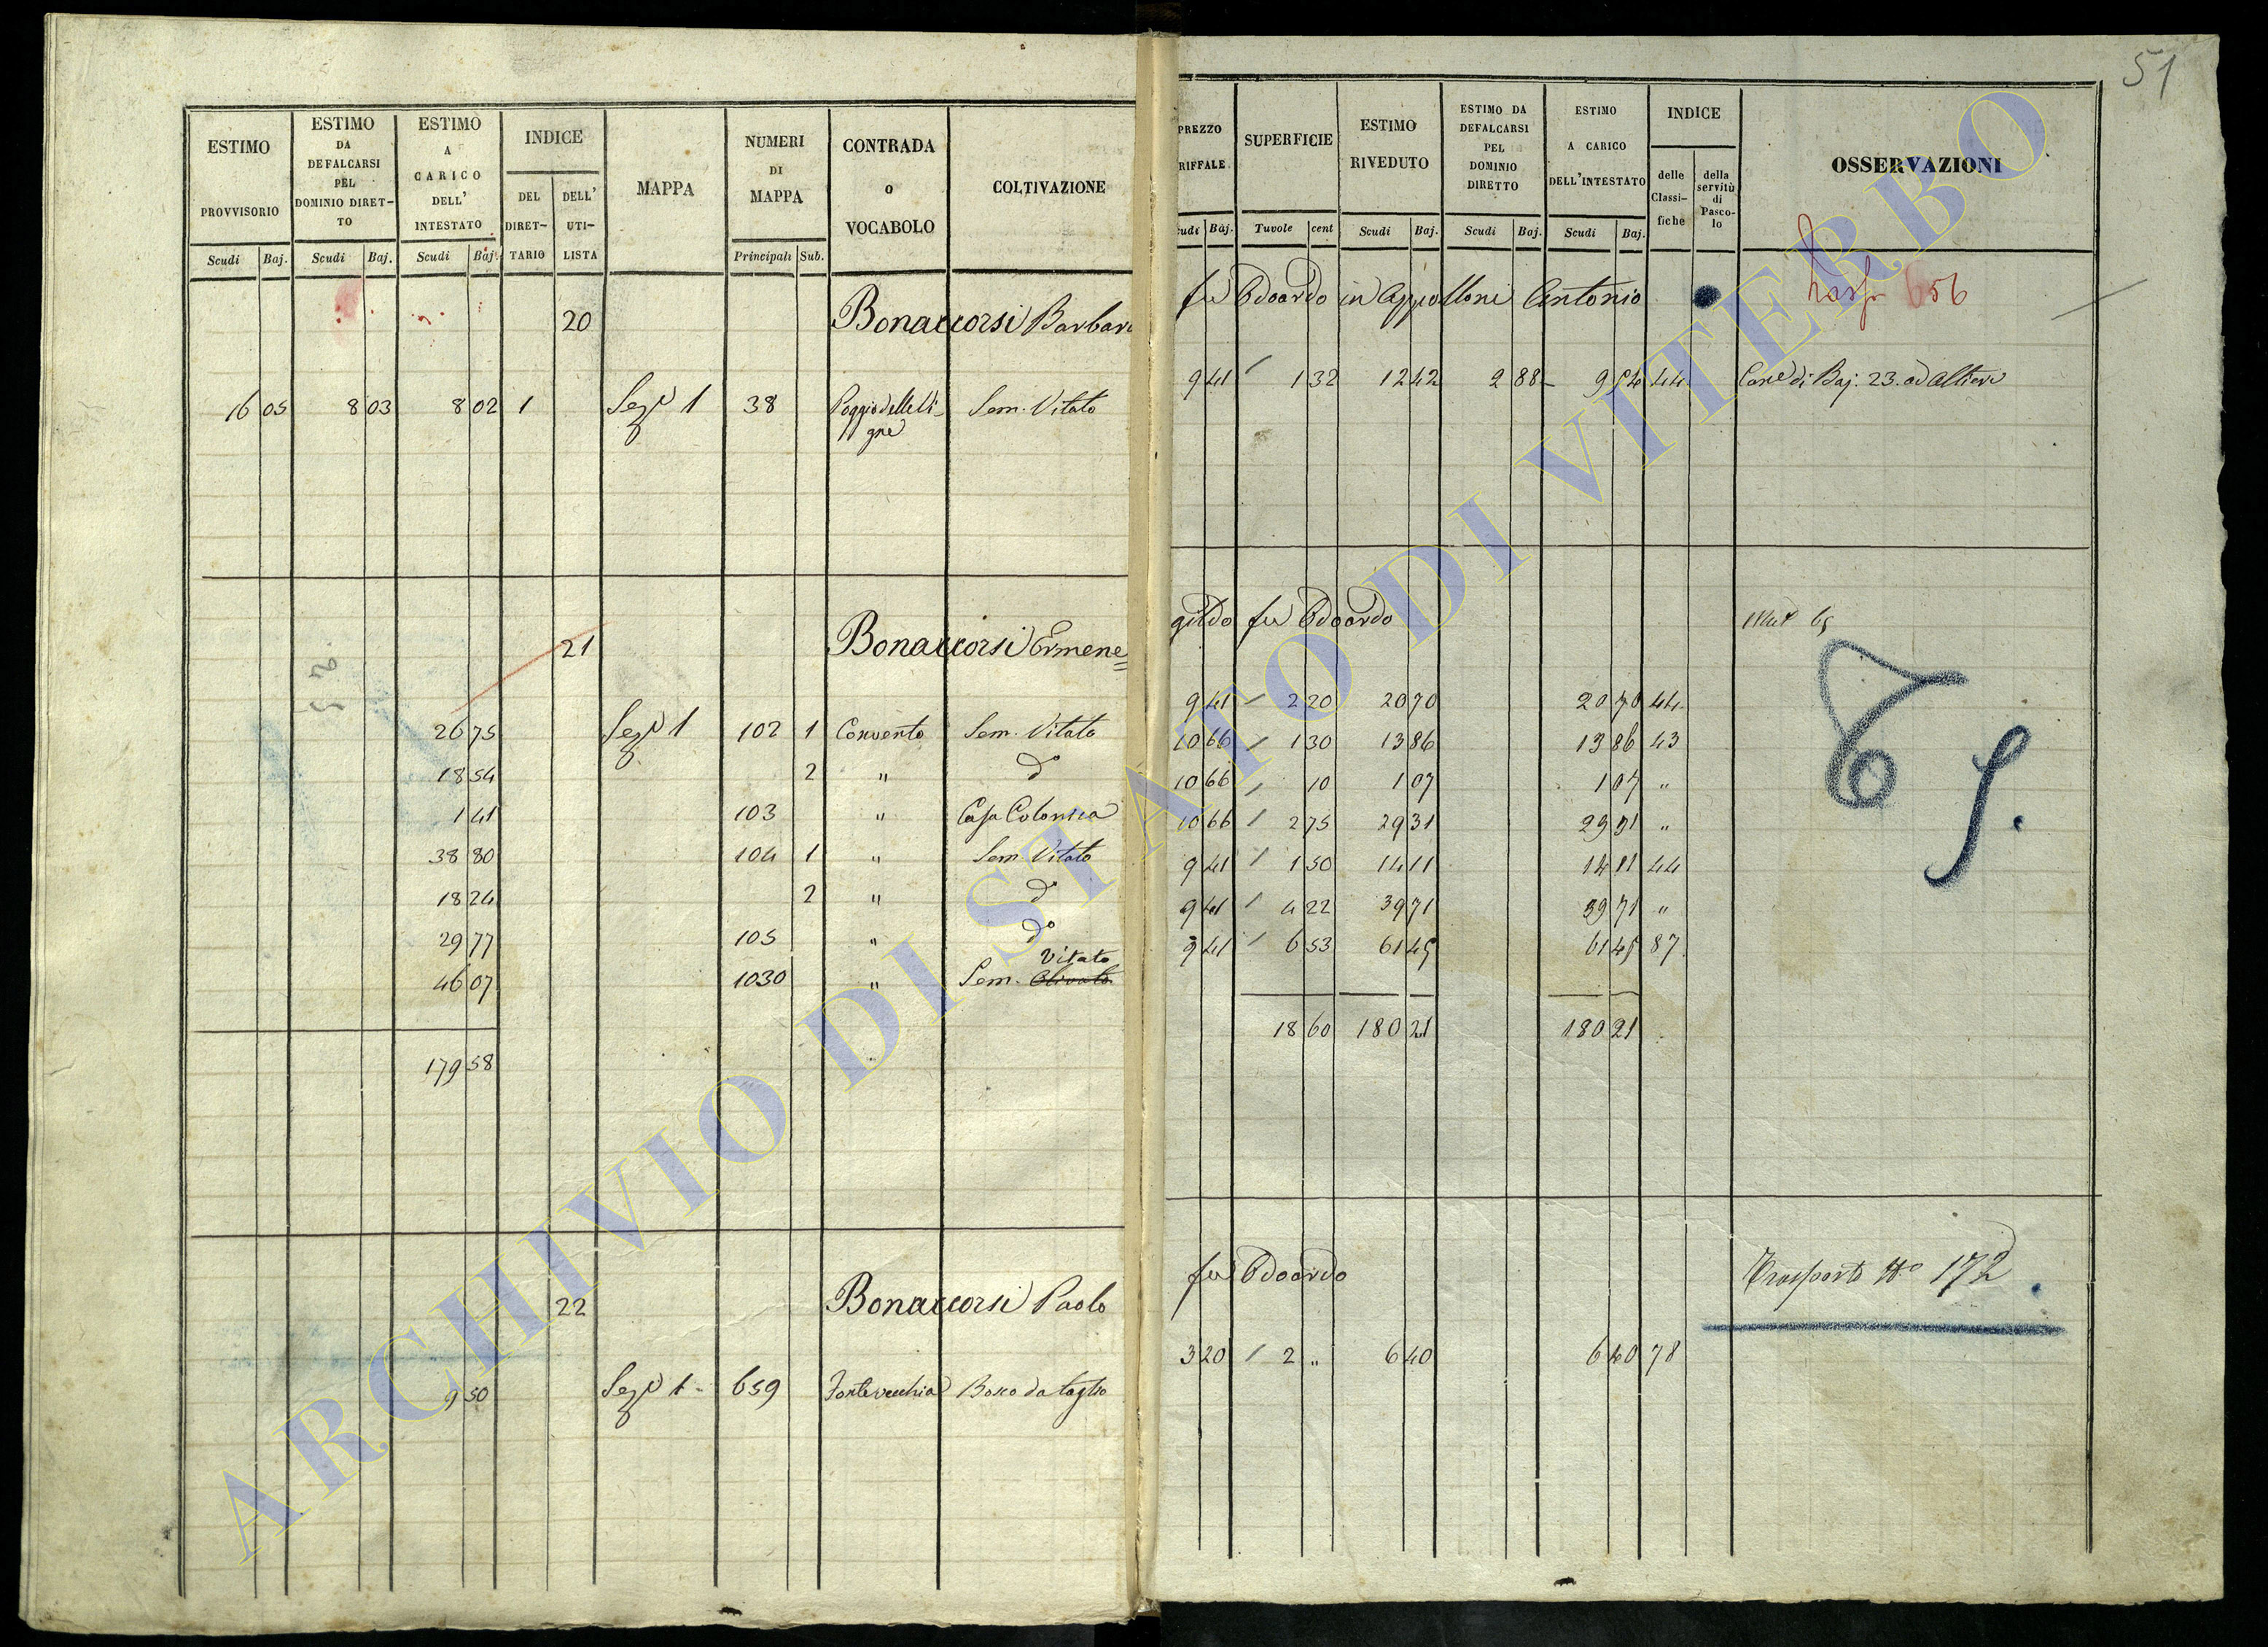 51
ESTIMO PROVVISORIO
ESTIMO DA DEFALCARSI PEL DOMINIO DIRET-TO
ESTIMO A CARICO DELL' INTESTATO
INDICE
DEL DIRET-TARIO
DELL' UTI-LISTA
MAPPA
NUMERI DI MAPPA
CONTRADA o VOCABOLO
COLTIVAZIONE
PREZZO
RIFFALE
SUPERFICIE
ESTIMO RIVEDUTO
ESTIMO DA DEFALCARSI PEL DOMINIO DIRETTO
ESTIMO A CARICO DELL'INTESTATO
INDICE
delle Classi-fiche
della servitù di Pasco-lo
OSSERVAZIONI
Scudi Baj. Scudi Baj. Scudi Baj. Principali Sub.
cudi Baj. Tavole cent Scudi Baj. Scudi Baj. Scudi Baj.
20 Bonaccorsi Barbara fu Odoardo in Appolloni Antonio 656
16 05 8 03 8 02 1 Sez.e 1 38 Poggio delle Vi- Sem. Vitato 9 41 1 32 12 42 2 88 9 54 44 Cane di Baj. 23. ad Altieri
gne
21 Bonaccorsi Ermene= gildo fu Odoardo
26 75 Sez.e 1 102 1 Convento Sem. Vitato 9 41 2 20 20 70 20 70 44
18 54 2 " do 10 66 1 30 13 86 13 86 43
1 41 103 " Casa Colonica 10 66 10 1 07 1 07 "
38 80 104 1 " Sem. Vitato 10 66 2 75 29 31 29 31 "
18 24 2 " do 9 41 1 50 14 11 14 11 44
29 77 105 " do 9 41 4 22 39 71 39 71 "
Vitato
46 07 1030 " Sem. Olivato 9 41 6 53 61 45 61 45 87
179 58 18 60 180 21 180 21
22 Bonaccorsi Paolo fu Odoardo Trasporto No 172
9 50 Sez.e 1 659 Fontevecchia Bosco da taglio 3 20 2 " 6 40 6 40 78
ARCHIVIO DI STATO DI VITERBO